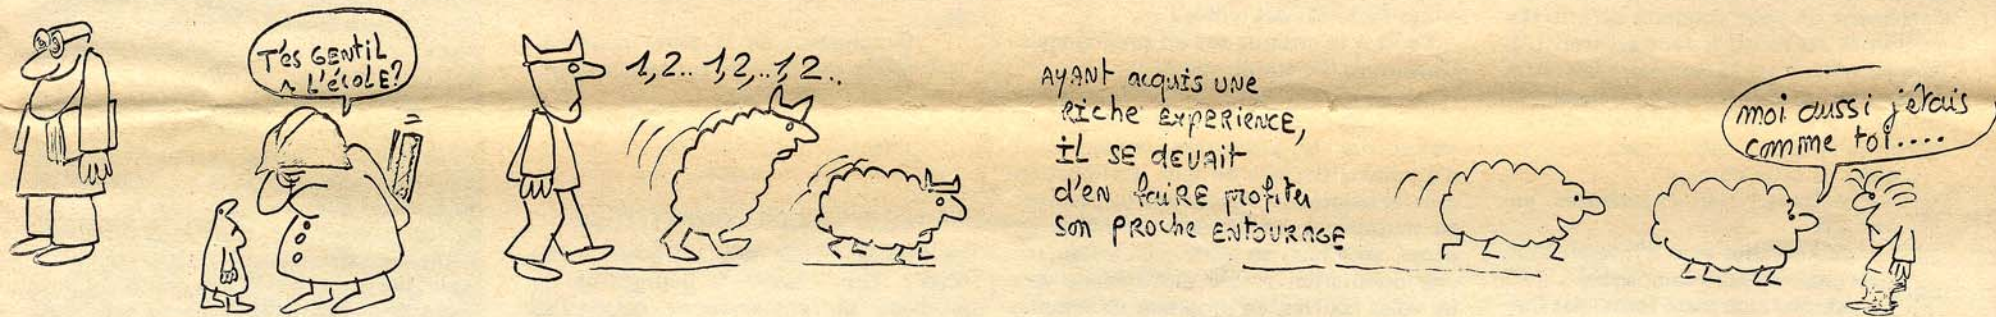 T'es GENTIL
A L'éCOLE?
1,2.. 1,2,..1,2..
AYANT acquis UNE
RIche EXPERIENCE,
IL SE devait
d'en faiRE profiter
son PROche ENTOURAGE
moi aussi j'étais
comme toi....